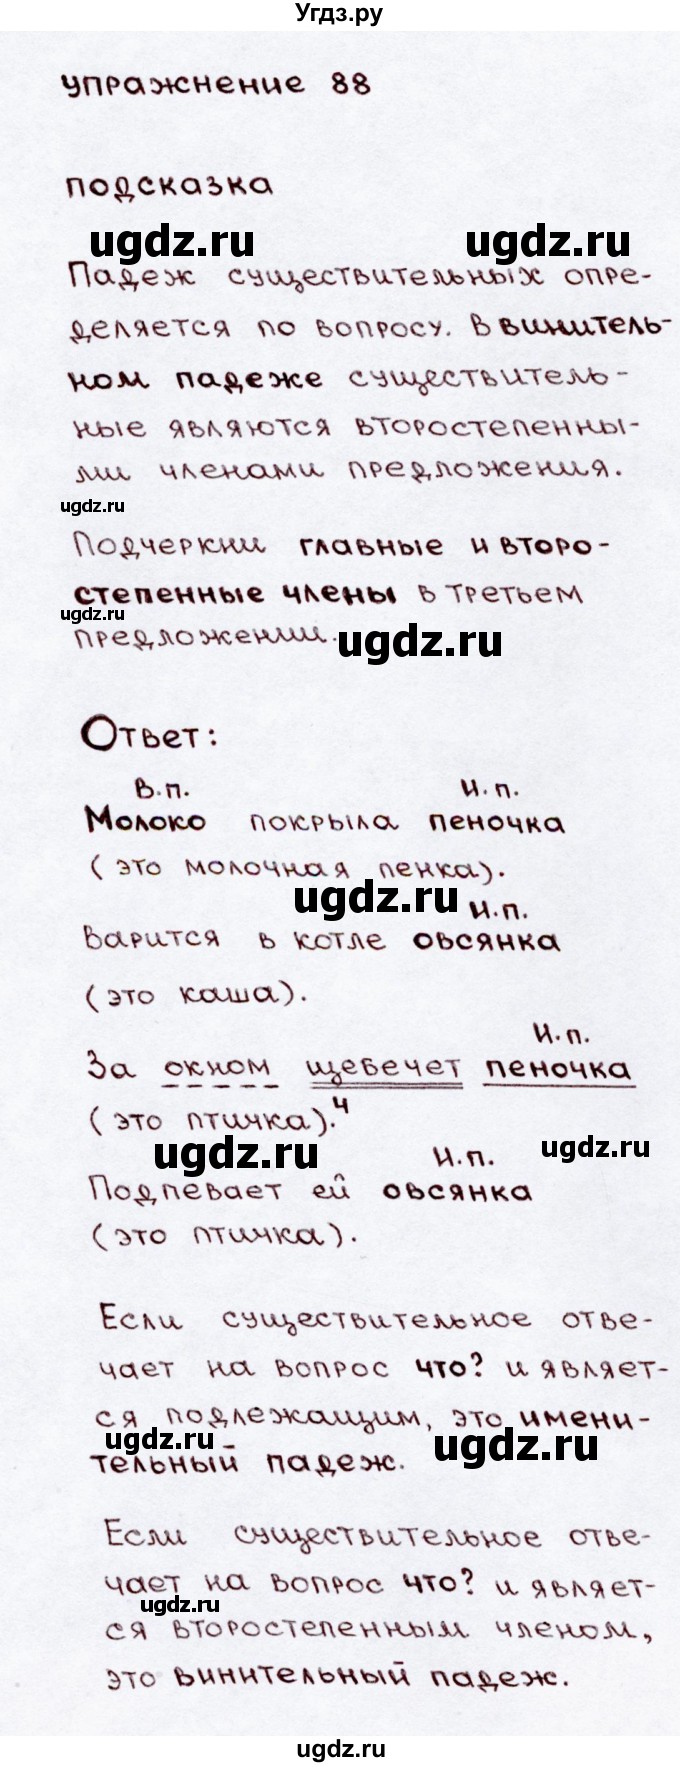 Угдз.ру
упражнение 88
подсказка
ugdz.ru ugdz.ru
Падеж существительных опре-
деляется по вопросу. В винитель-
ном падеже существитель-
ные являются второстепенны-
ми членами предложения.
ugdz.ru
Подчеркни главные и второ-
степенные члены в третьем
ugdz.ru
предложении.
ugdz.ru
Ответ:
В.п. И.п.
Молоко покрыла пеночка
(это молочная пенка).
ugdz.ru
И.п.
Варится в котле овсянка
(это каша).
И.п.
За окном щебечет пеночка
(это птичка).⁴
ugdz.ru ugdz.ru
И.п.
Подпевает ей овсянка
(это птичка).
Если существительное отве-
чает на вопрос что? и являет-
ся подлежащим, это имени-
ugdz.ru ugdz.ru
тельный падеж.
Если существительное отве-
чает на вопрос что? и являет-
ugdz.ru
ся второстепенным членом,
это винительный падеж.
ugdz.ru